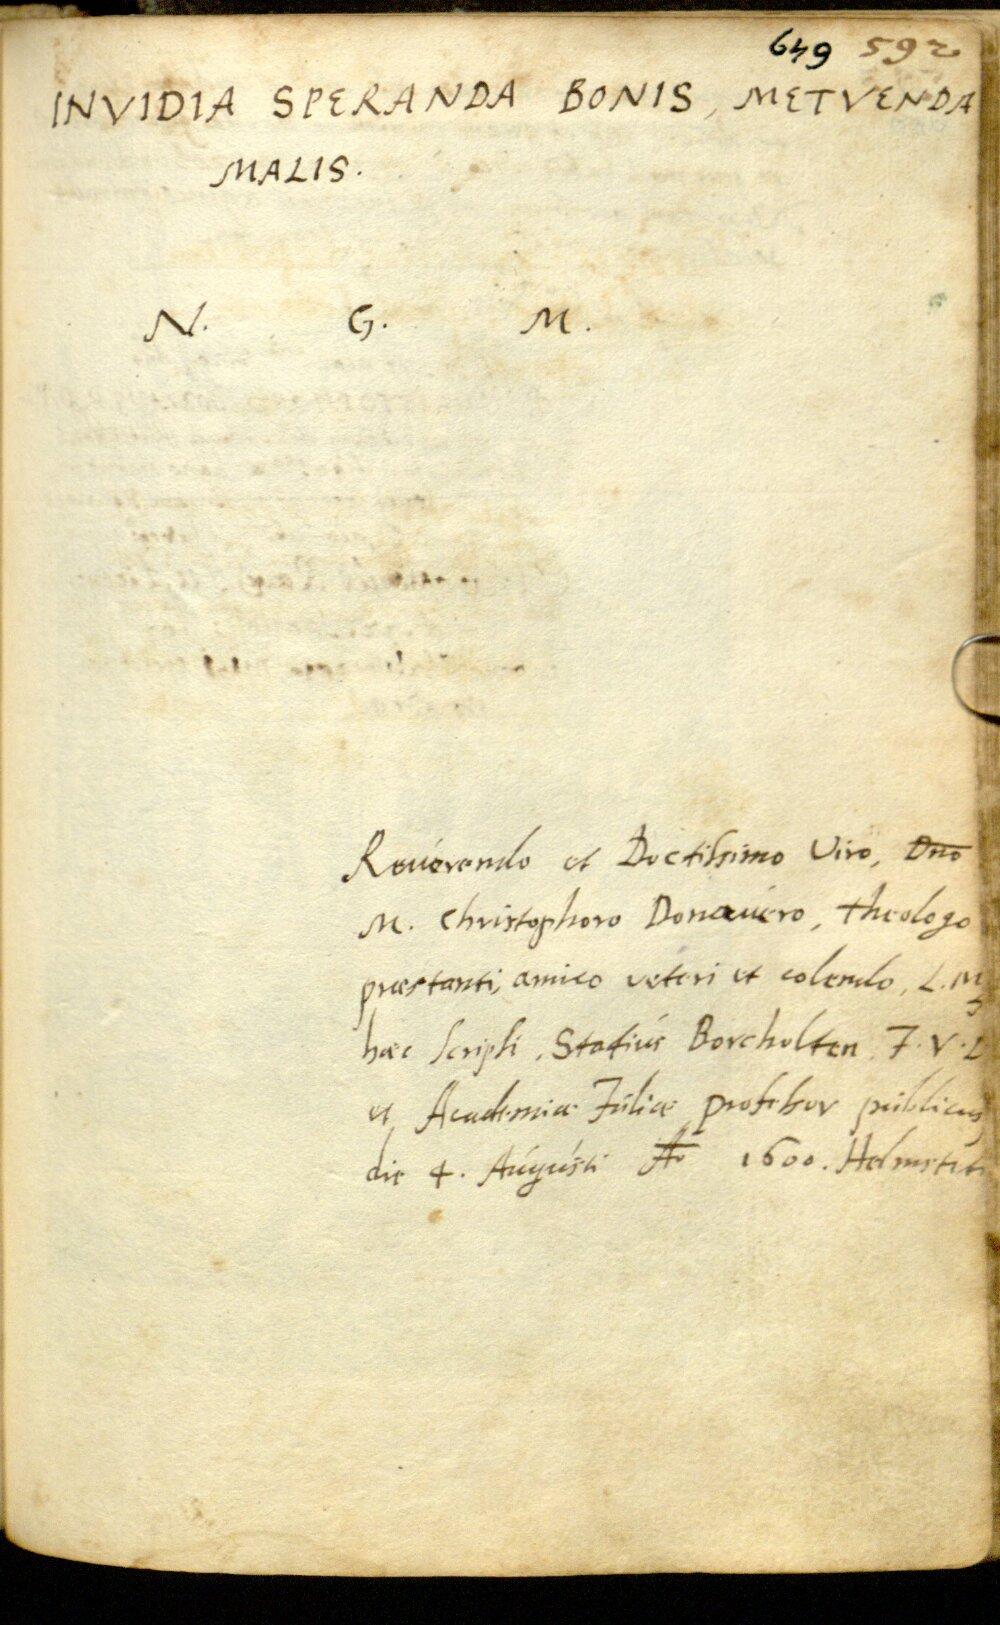 649 592
INVIDIA SPERANDA BONIS, METVENDA
MALIS.
N. G. M.
Reuerendo et Doctissimo Viro, Dno
M. Christophoro Donauero, theologo
præstanti, amico veteri et colendo, L. M
hæc scripsi, Statius Borcholten J. V. D
et Academiæ Juliæ professor publicus,
die 4. Augusti Ao 1600. Helmsteti